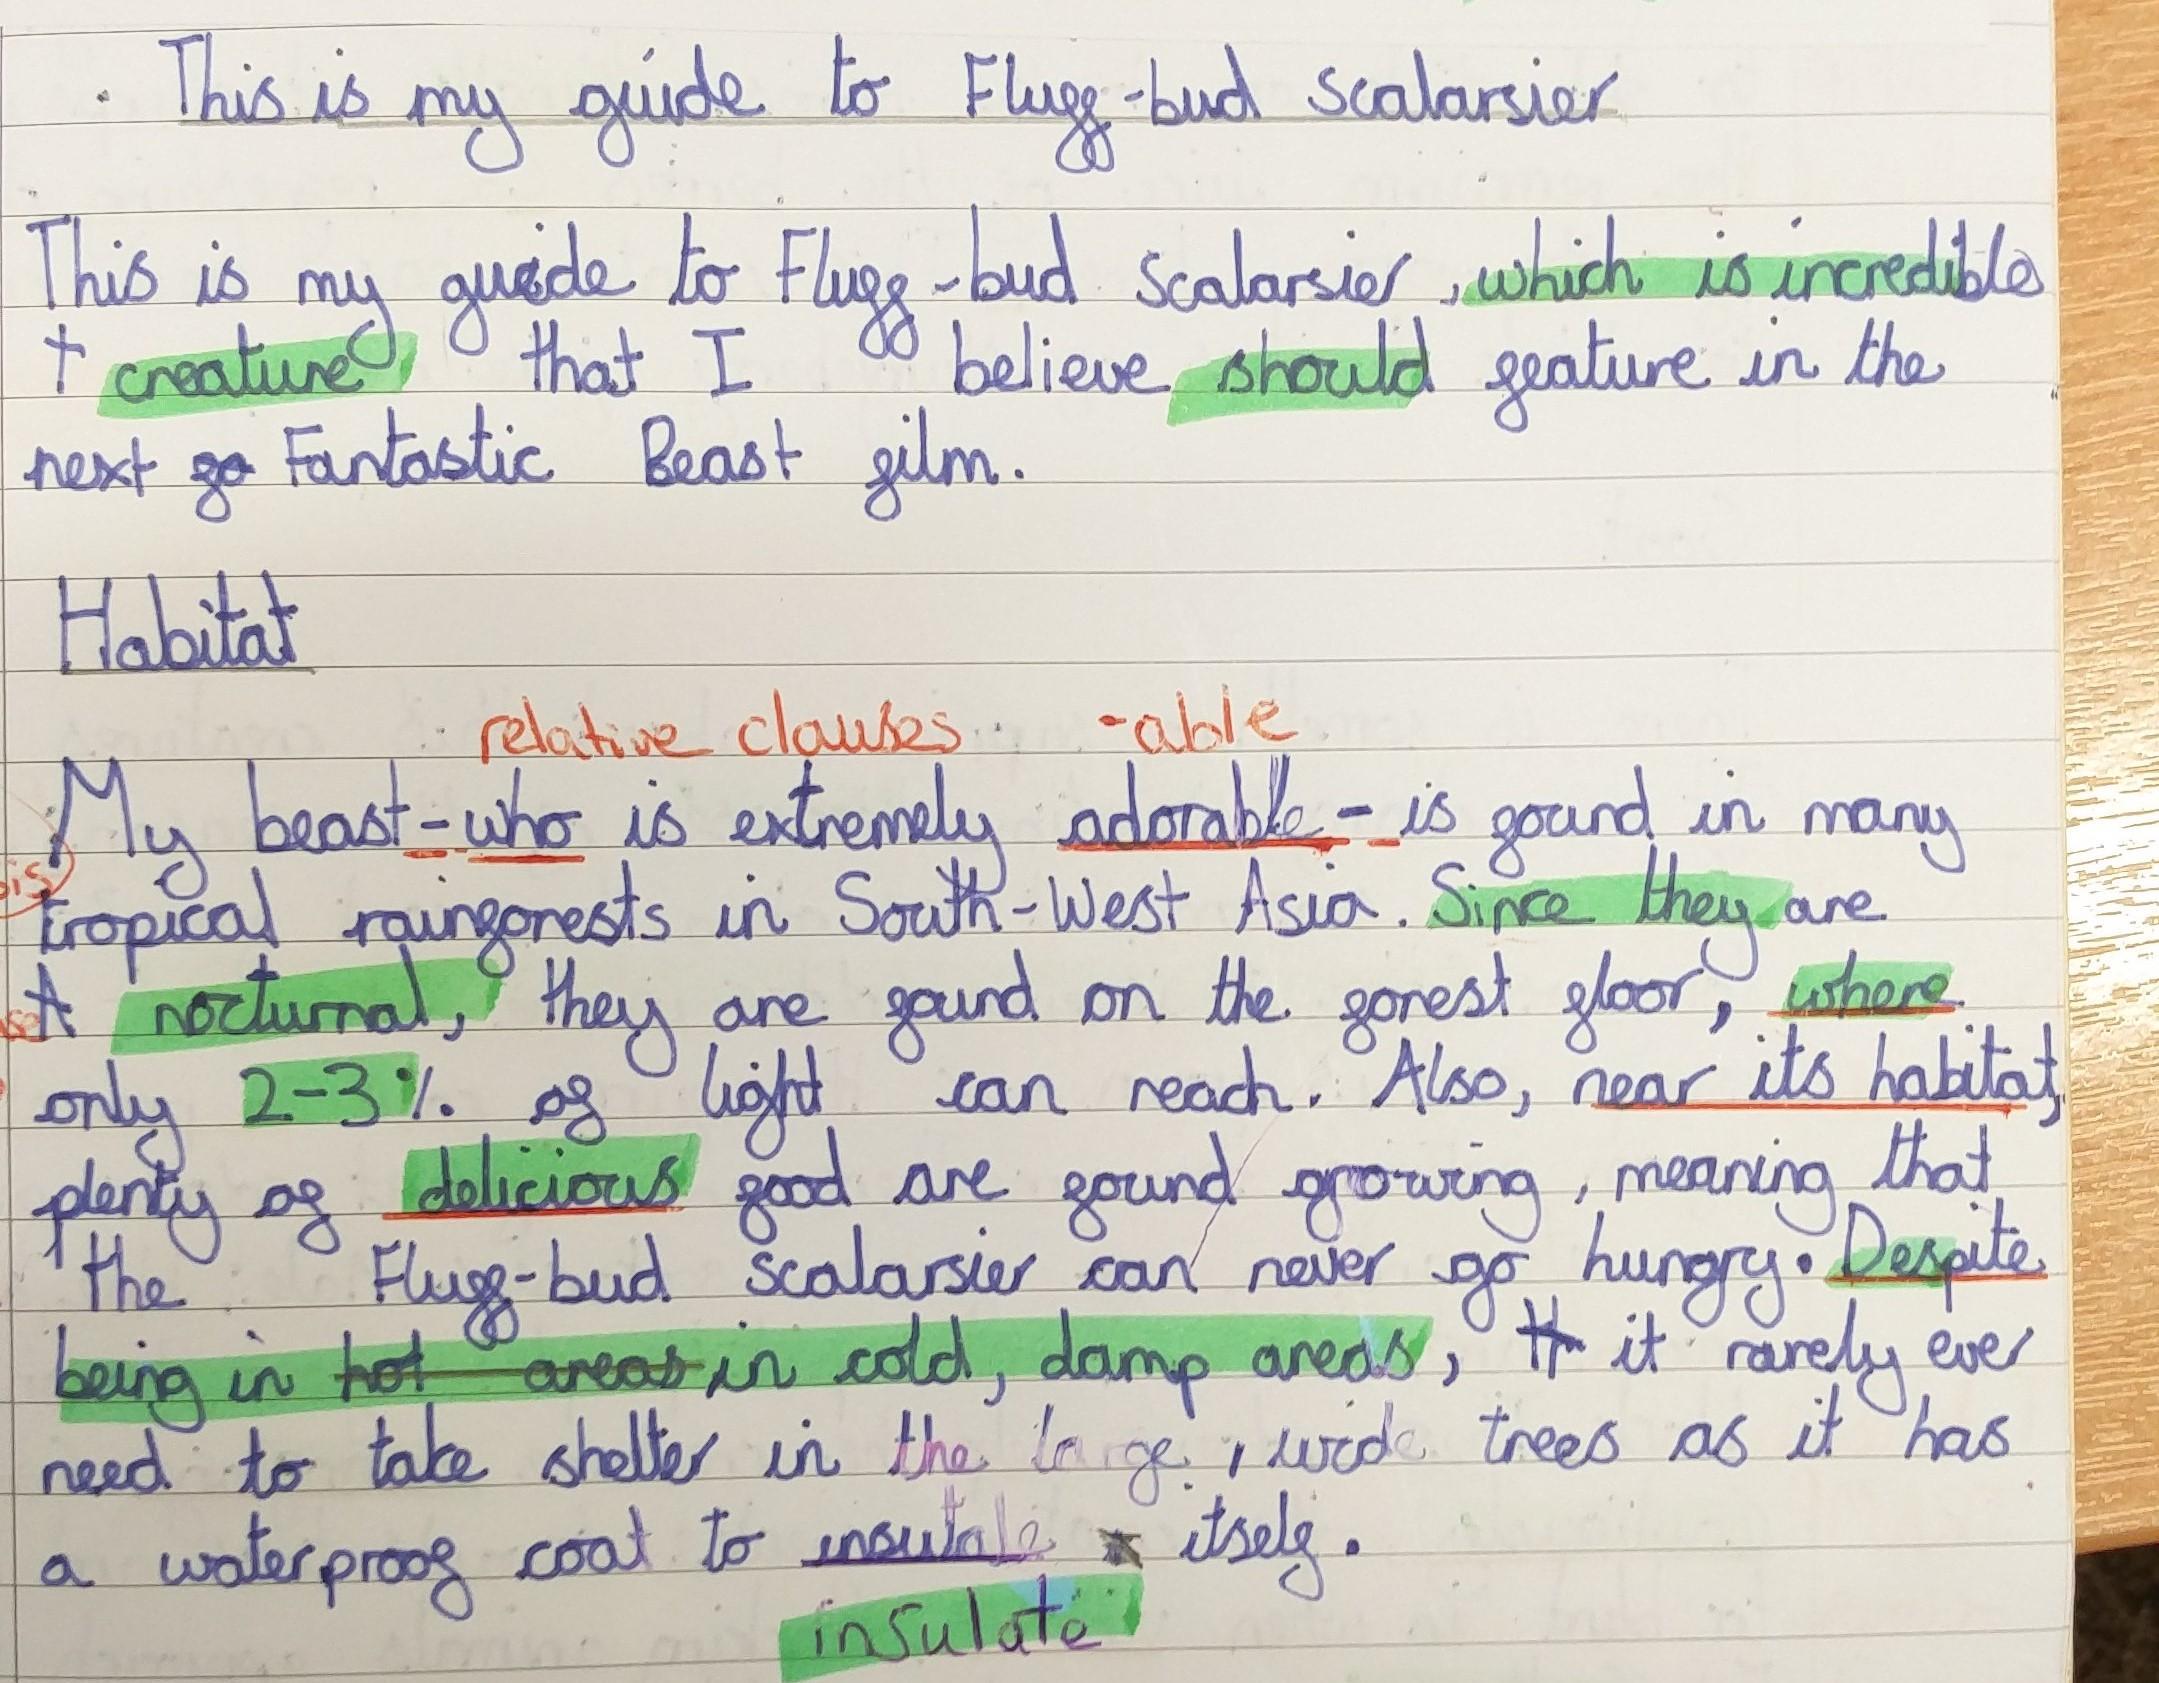 This is my guide to Flugg-bud scalarsier
This is my guide to Flugg-bud scalarsier, which is incredible
creature that I believe should feature in the
next Fantastic Beast film.
Habitat
relative clauses -able
My beast - who is extremely adorable - is found in many
tropical rainforests in South-West Asia. Since they are
nocturnal, they are found on the forest floor, where
only 2-3% of light can reach. Also, near its habitat,
plenty of delicious food are found growing, meaning that
the Flugg-bud scalarsier can never go hungry. Despite
being in hot areas in cold, damp areas, it rarely ever
need to take shelter in the large, wide trees as it has
a waterproof coat to insutale itself.
insulate